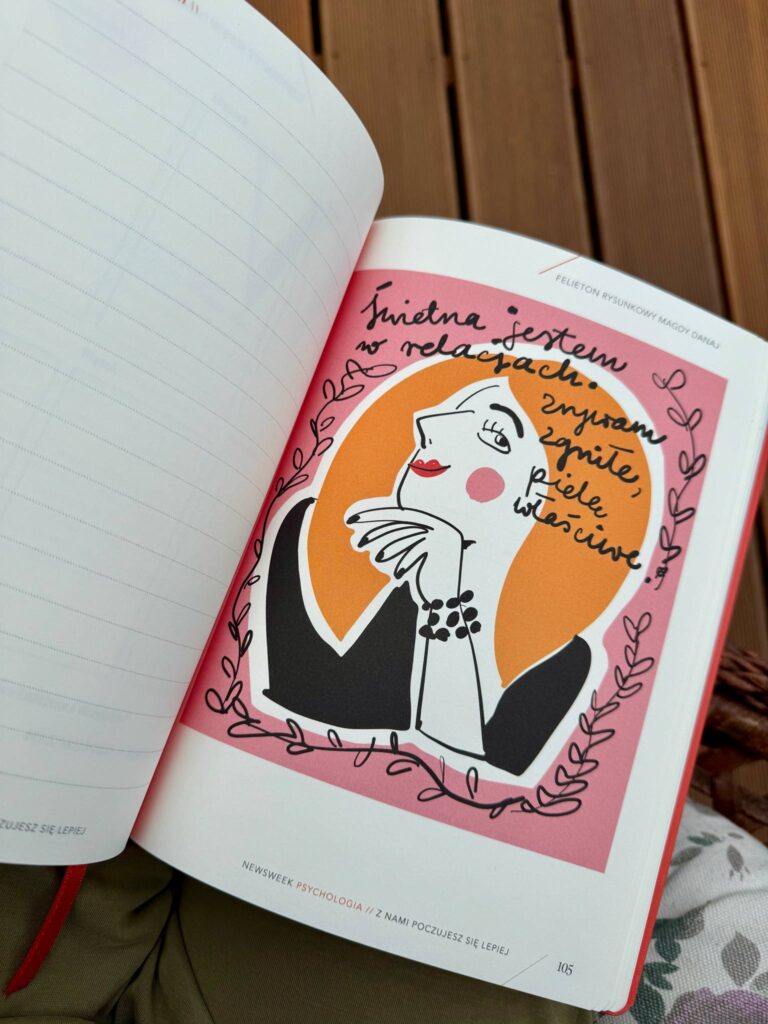 FELIETON RYSUNKOWY MAGDY DANAJ
Świetna jestem
w relacjach.
Zrywam
zgniłe,
pielę
właściwe.
ZUJESZ SIĘ LEPIEJ
NEWSWEEK PSYCHOLOGIA // Z NAMI POCZUJESZ SIĘ LEPIEJ
105